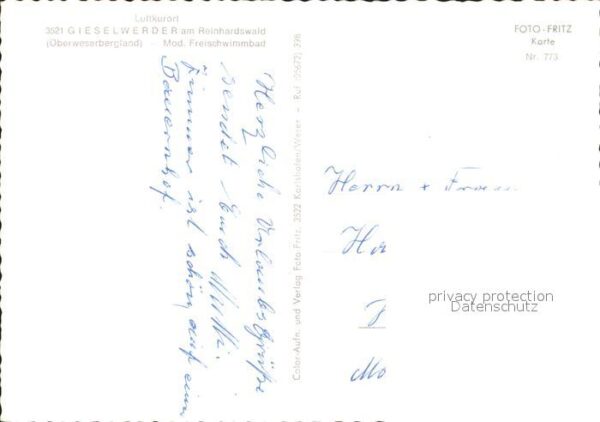 Luftkurort
3521 GIESELWERDER am Reinhardswald
(Oberweserbergland) - Mod. Freischwimmbad
FOTO-FRITZ
Karte
Nr. 773
Herzliche Urlaubsgrüße
sendet Euch Mutti.
Zimmer ist schön, auf ein
Bauernhof.
Color-Aufn. und Verlag Foto-Fritz, 3522 Karlshafen/Weser - Ruf (05672) 398
Herrn + Frau
privacy protection
Datenschutz